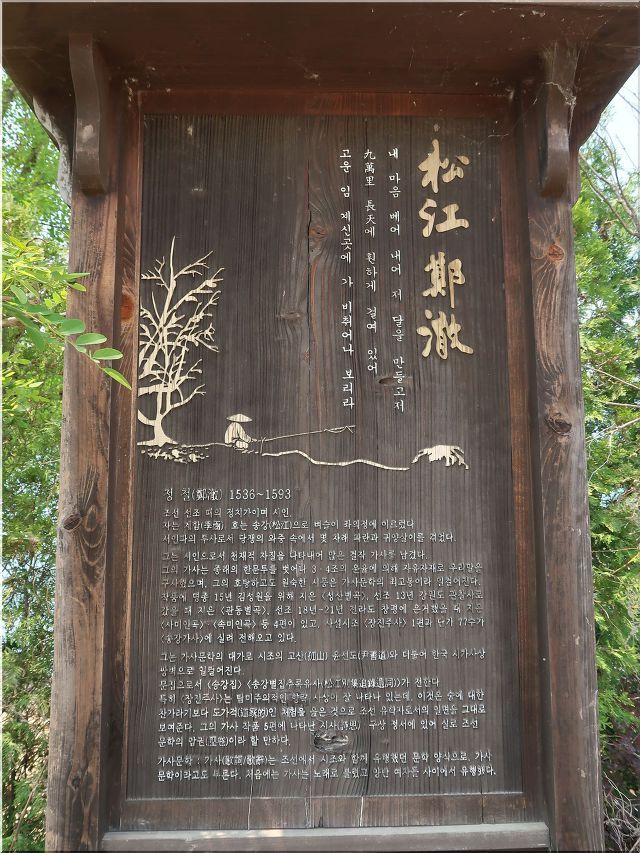 松江 鄭澈
내 마음 베어 내어 저 달을 만들고저
九萬里 長天에 훤하게 걸여 있어
고운 임 계신곳에 가 비취어나 보리라
정 철(鄭澈) 1536~1593
조선 선조 때의 정치가이며 시인.
자는 계함(季涵) 호는 송강(松江)으로 벼슬이 좌의정에 이르렀다
서인파의 투사로서 당쟁의 와중 속에서 몇 차례 파란과 귀양살이를 겪었다.
그는 시인으로서 천재적 자질을 나타내어 많은 걸작 가사를 남겼다.
그의 가사는 종래의 한문투를 벗어나 3·4조의 운율에 의해 자유자재로 우리말을
구사했으며, 그의 호탕하고도 원숙한 시풍은 가사문학의 최고봉이라 일컬어진다.
작품에 명종 15년 김성원을 위해 지은 <성산별곡>, 선조 13년 강원도 관찰사로
갔을 때 지은 <관동별곡>, 선조 18년~21년 전라도 창평에 은거했을 때 지은
<사미인곡> <속미인곡> 등 4편이 있고, 사설시조 <장진주사> 1편과 단가 77수가
<송강가사>에 실려 전해오고 있다.
그는 가사문학의 대가로 시조의 고산(孤山) 윤선도(尹善道)와 더불어 한국 시가사상
쌍벽으로 일컬어진다.
문집으로서 <송강집> <송강별집추록유사(松江別集追錄遺詞)>가 전한다
특히 <장진주사>는 탐미주의적인 사상이 잘 나타나 있는데, 이것은 술에 대한
찬가라기보다 도가적(道家的)인 체험을 읊은 것으로 조선 유학자로서의 일면을 그대로
보여준다. 그의 가사 작품 5편에 나타난 시사(詩思) 구상 정서에 있어 실로 조선
문학의 압권(壓卷)이라 할 만하다.
가사문학 : 가사(歌詞/歌辭)는 조선에서 시조와 함께 유행했던 문학 양식으로, 가사
문학이라고도 부른다. 처음에는 가사는 노래로 불렸고 양반 여자들 사이에서 유행했다.